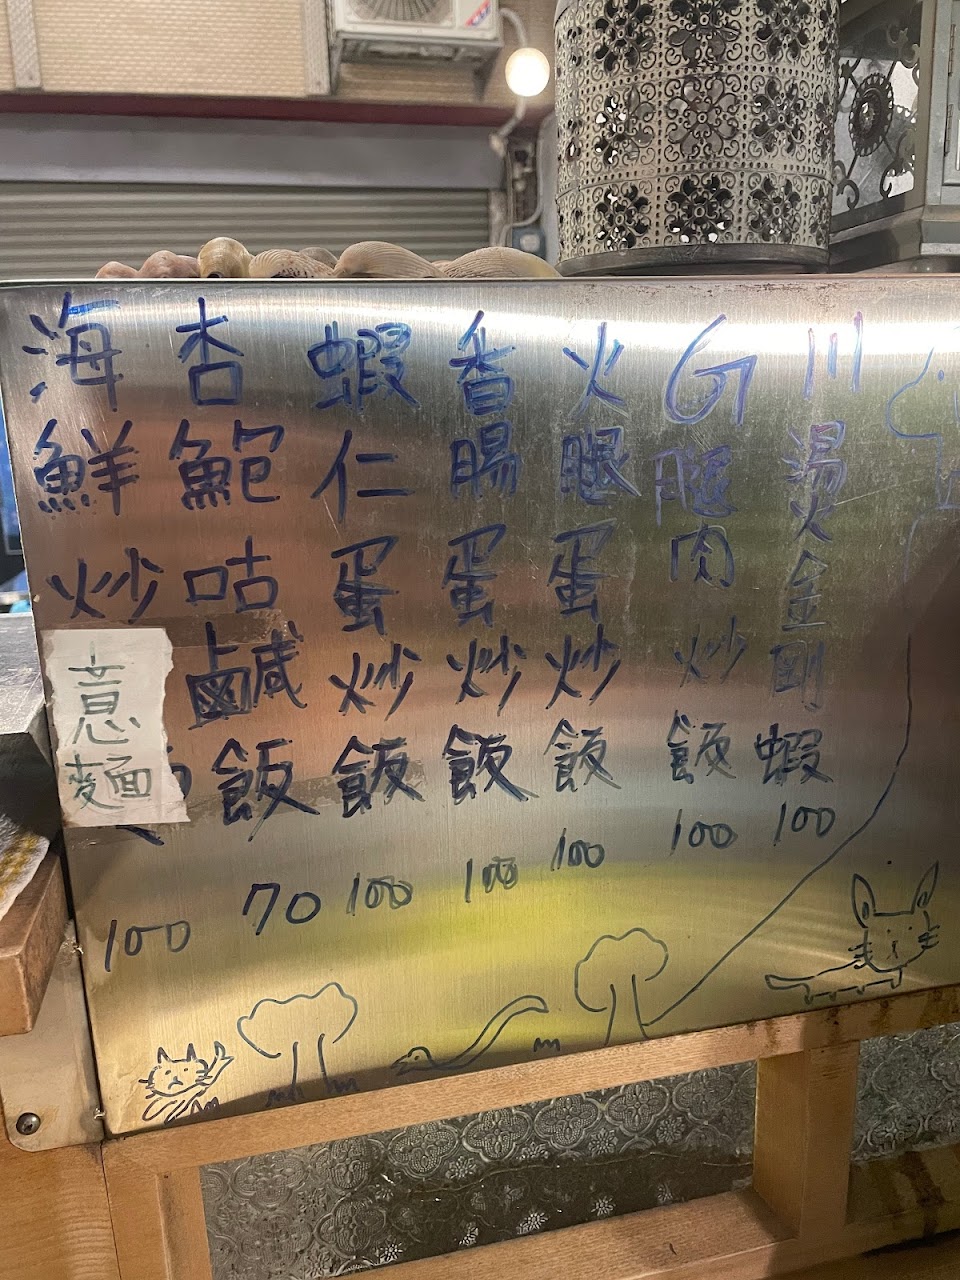 海鮮炒意麵 100
杏鮑咕鹹飯 70
蝦仁蛋炒飯 100
香腸蛋炒飯 100
火腿蛋炒飯 100
G腿肉炒飯 100
川燙金剛蝦 100